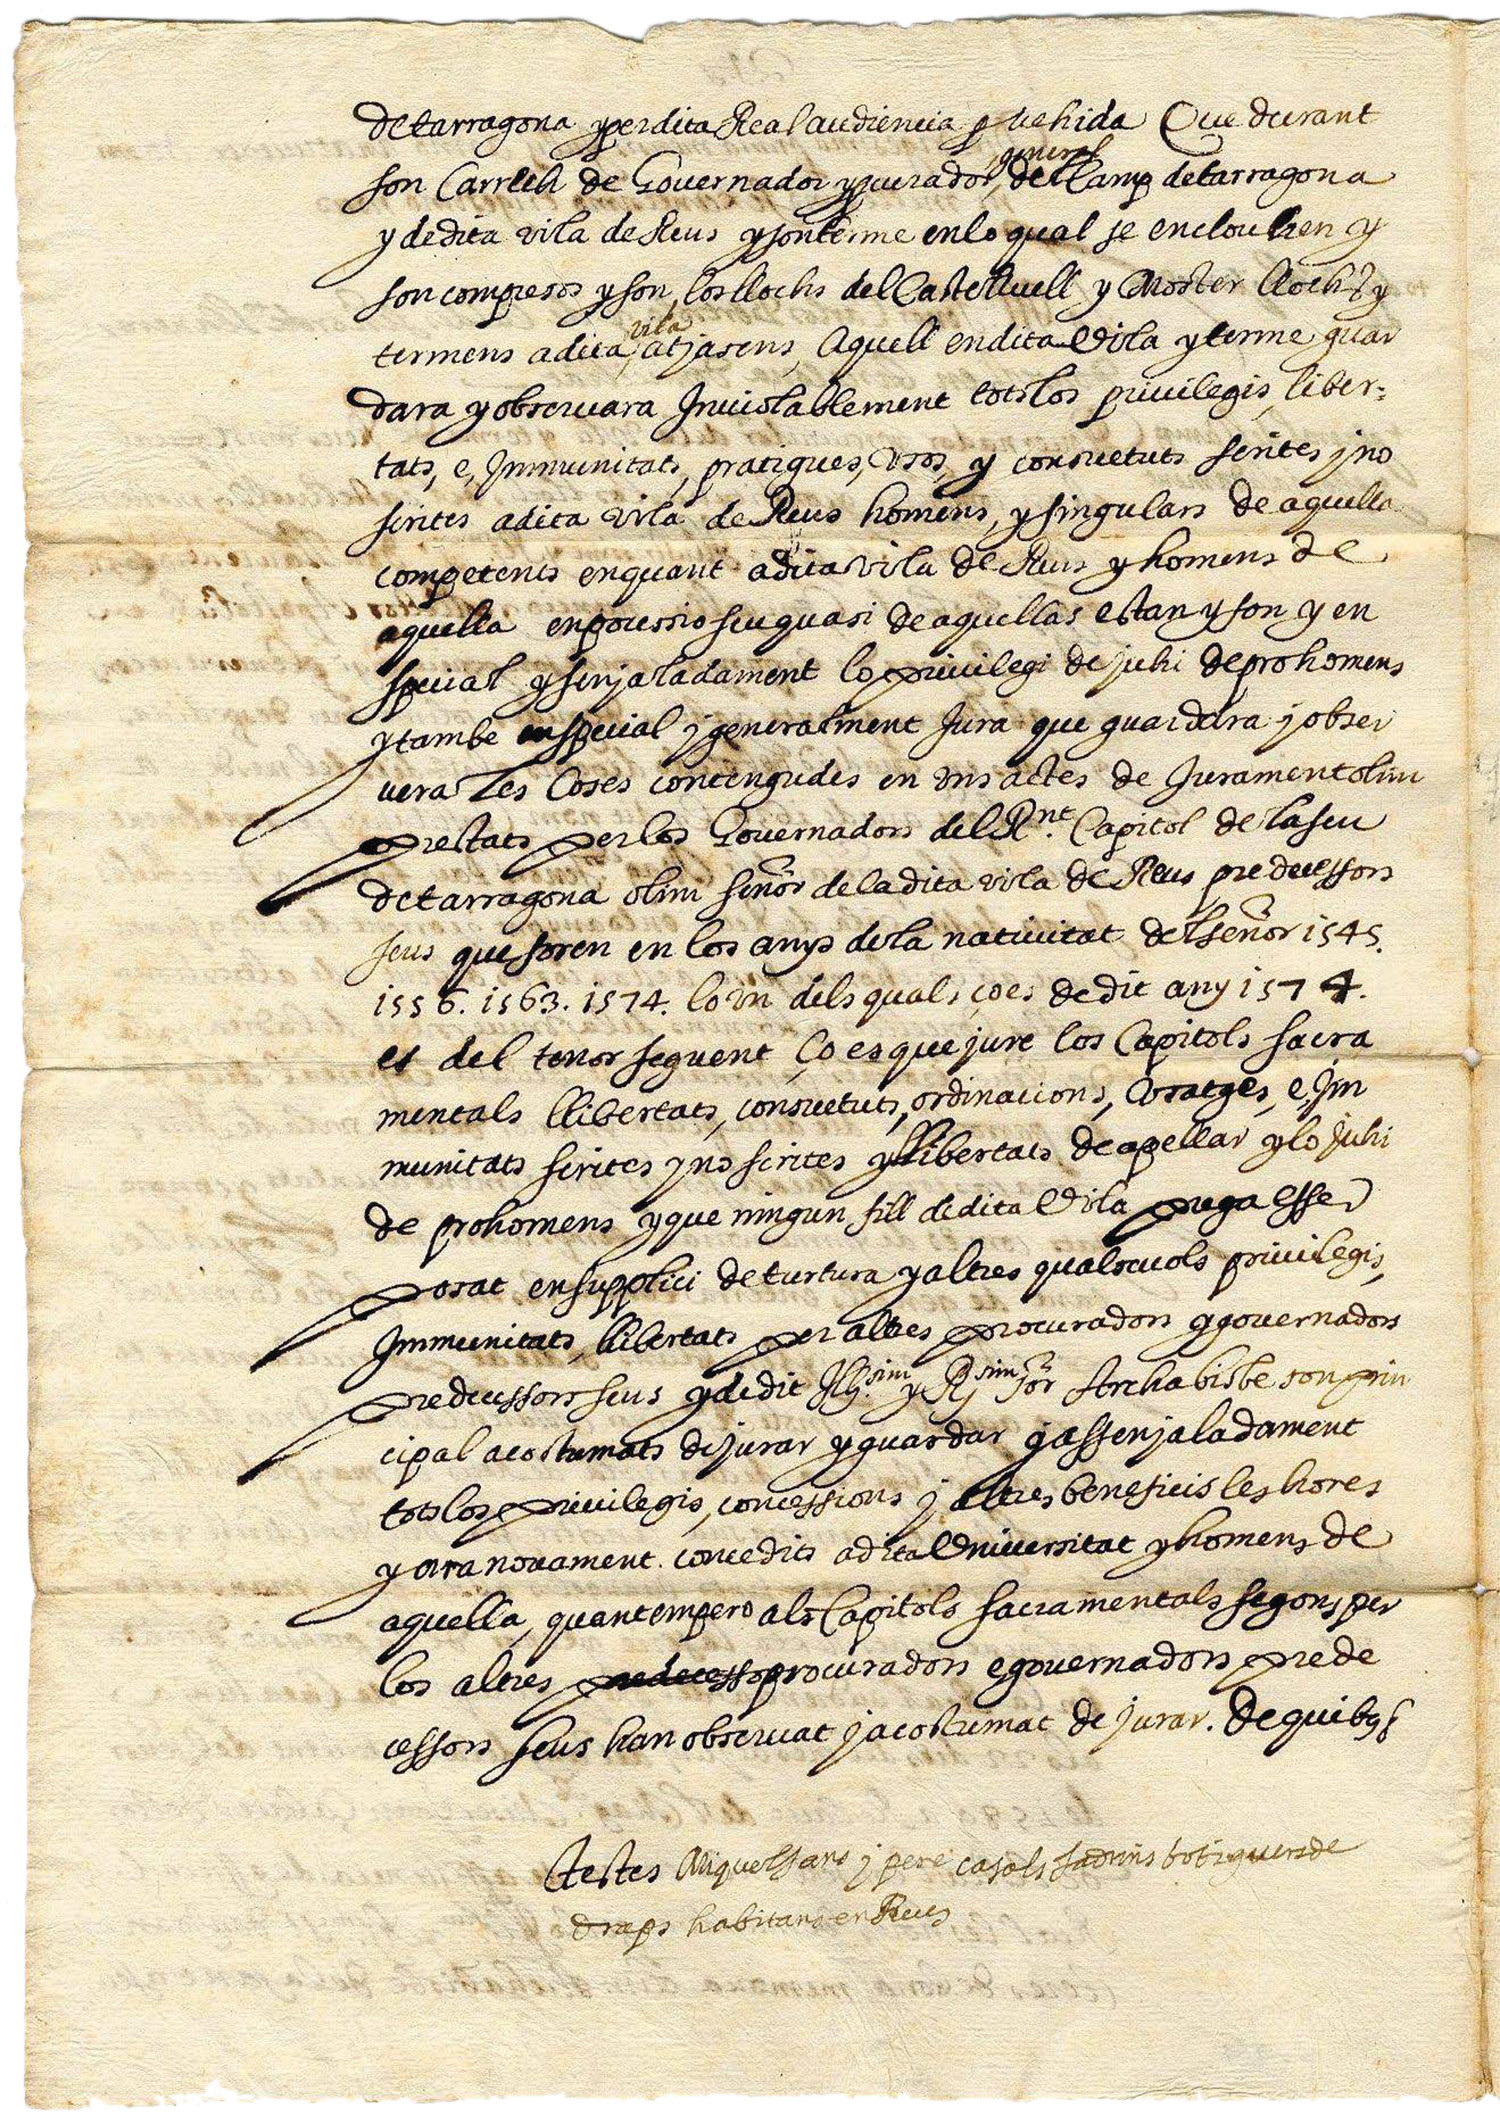 de tarragona y per dita Real audiencia p vehida Que durant
son Carrech de Governador y pcurador general del Camp de tarragona
y de dita vila de Reus y son terme en lo qual se enclouhen y
son compresos y son los llochs del Castellvell y Moster llochs y
termens a dita vila atjasens, Aquell en dita Vila y terme guar
dara y observara Inviolablement tots los privilegis, liber=
tats, e, Immunitats, pratiques, Usos, y consuetuts scrites j no
scrites a dita vila de Reus homens, y singulars de aquella
competents en quant a dita vila de Reus y homens de
aquella en possessio seu quasi de aquellas estan y son y en
special y senjaladament lo privilegi de juhi de prohomens
y tambe en special j generalment Jura que guardara j obser
vera Les Coses contengudes en uns actes de Jurament olim
prestats per los Governadors del Rnt. Capitol de la seu
de tarragona olim señor de la dita vila de Reus predecessors
seus que foren en los anys de la nativitat del señor 1545.
1556. 1563. 1574. lo un dels quals ço es de dit any 1574.
es del tenor seguent Ço es que jure los Capitols sacra
mentals llibertats, consuetuts, ordinacions, Usatges, e, Im
munitats scrites y no scrites y llibertats de apellar y lo Juhi
de prohomens y que ningun fill de dita Vila puga esser
posat en supplici de turtura y altres qualsevols privilegis,
Immunitats, llibertats per altres procuradors y governadors
predecessors seus y de dit Illsim. y Rsim Sor Archabisbe son prin
cipal acostumats de jurar y guardar y assenjaladament
tots los privilegis, concessions j altres beneficis les hores
y ara novament. concedits a dita Universitat y homens de
aquella, quant empero als Capitols sacramentals segons per
los altres predecessor procuradors e governadors prede
cessors seus han observat j acostumat de jurar. De quibus
Testes Miquel j pere casals fadrins botiguers de
draps habitans en Reus